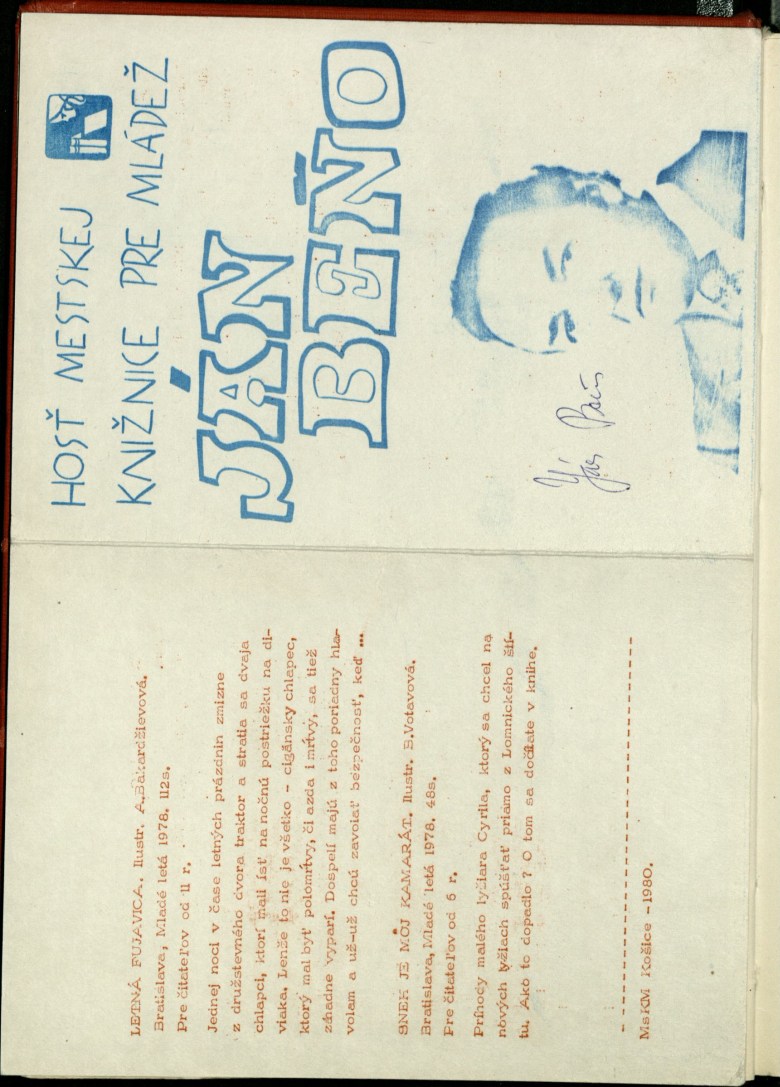 LETNÁ FUJAVICA. Ilustr. A.Bakardžievová.
Bratislava, Mladé letá 1978. 112s.
Pre čitateľov od 11 r.
Jednej noci v čase letných prázdnin zmizne
z družstevného dvora traktor a stratia sa dvaja
chlapci, ktorí mali ísť na nočnú postriežku na di-
viaka. Lenže to nie je všetko - cigánsky chlapec,
ktorý mal byť polomŕtvy, či azda i mŕtvy, sa tiež
záhadne vyparí. Dospelí majú z toho poriadny hla-
volam a už-už chcú zavolať bezpečnosť, keď ...
SNEH JE MÔJ KAMARÁT. Ilustr. B.Votavová.
Bratislava, Mladé letá 1978. 48s.
Pre čitateľov od 6 r.
Príhody malého lyžiara Cyrila, ktorý sa chcel na
nových lyžiach spúšťať priamo z Lomnického ští-
tu. Ako to dopadlo ? O tom sa dočítate v knihe.
MsKM Košice - 1980.
HOSŤ MESTSKEJ
KNIŽNICE PRE MLÁDEŽ
JÁN
BEŇO
Ján Beňo